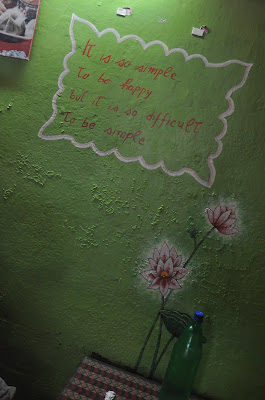 It is so simple
To be happy
but it is so difficult
To be simple